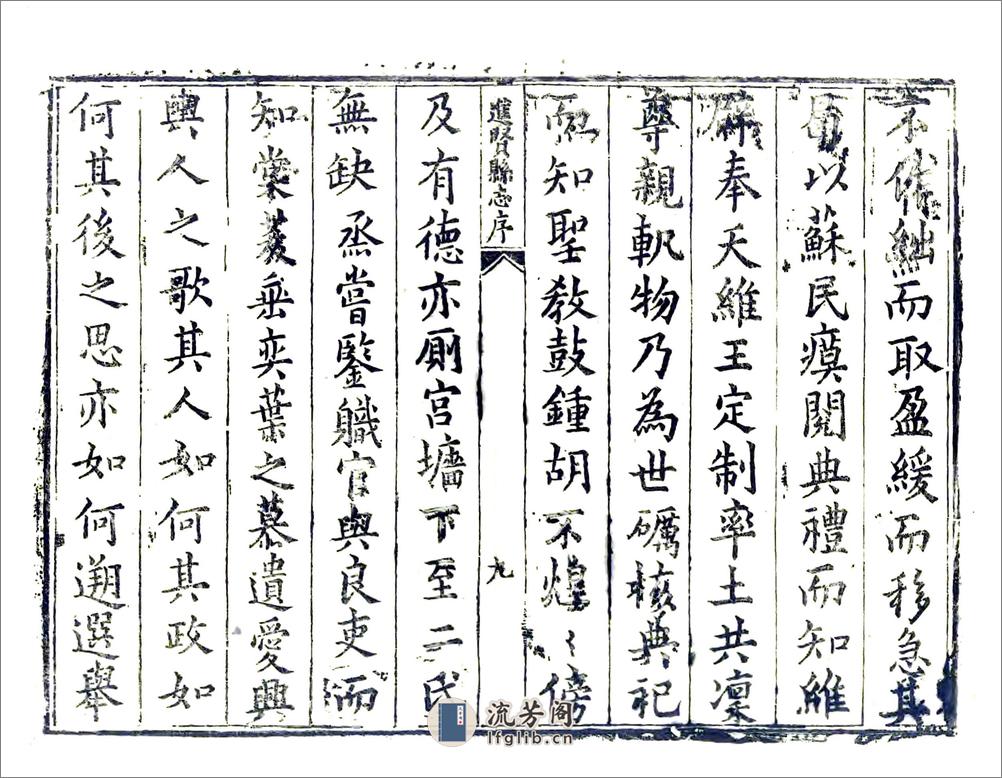 不俻絀而取盈緩而移急其
以蘇民瘼閱典禮而知維
辟奉天維王定制率土共凜
尊親軌物乃為世礪核典祀
而知聖教鼓鍾胡不煌〻傍
進賢縣志序
九
及有德亦厠宮墻下至二氏
無缺烝嘗鑒職官與良吏而
知棠菱垂奕葉之慕遺愛興
輿人之歌其人如何其政如
何其後之思亦如何遡選舉
流芳阁
lfglib.cn